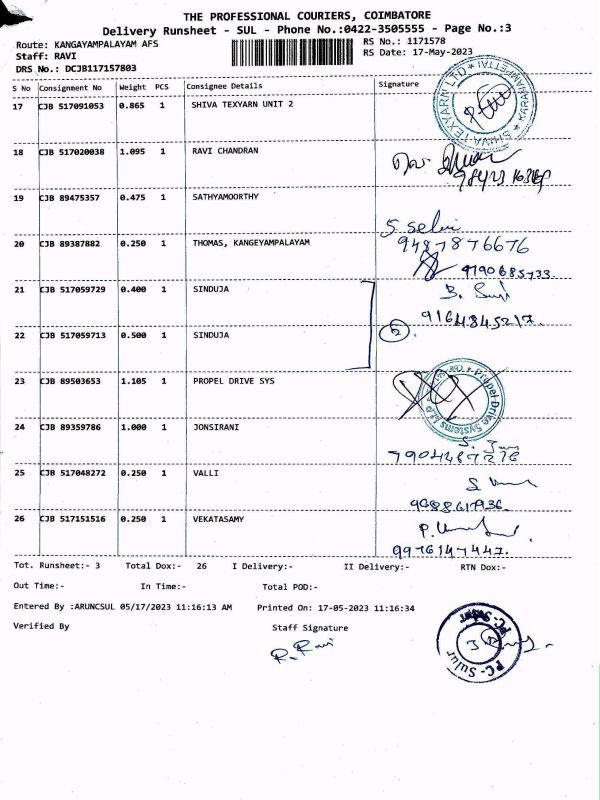 THE PROFESSIONAL COURIERS, COIMBATORE
Delivery Runsheet - SUL - Phone No.:0422-3505555 - Page No.:3
Route: KANGAYAMPALAYAM AFS
RS No.: 1171578
Staff: RAVI
RS Date: 17-May-2023
DRS No.: DCJB117157803
S No Consignment No Weight PCS Consignee Details Signature
17 CJB 517091053 0.865 1 SHIVA TEXYARN UNIT 2
SHIVA TEXYARN LTD
18 CJB 517020038 1.095 1 RAVI CHANDRAN
19 CJB 89475357 0.475 1 SATHYAMOORTHY
S. Selvi
9487876676
20 CJB 89387882 0.250 1 THOMAS, KANGEYAMPALAYAM
9790685733
21 CJB 517059729 0.400 1 SINDUJA
9164845217.
22 CJB 517059713 0.500 1 SINDUJA
2
23 CJB 89503653 1.105 1 PROPEL DRIVE SYS
Propel Drive Systems LLP
24 CJB 89359786 1.000 1 JONSIRANI
7904487276
25 CJB 517048272 0.250 1 VALLI
26 CJB 517151516 0.250 1 VEKATASAMY
9976147447.
Tot. Runsheet:- 3 Total Dox:- 26 I Delivery:- II Delivery:- RTN Dox:-
Out Time:- In Time:- Total POD:-
Entered By :ARUNCSUL 05/17/2023 11:16:13 AM Printed On: 17-05-2023 11:16:34
Verified By Staff Signature
R. Ravi
PC-Sulur
PC-Sulur